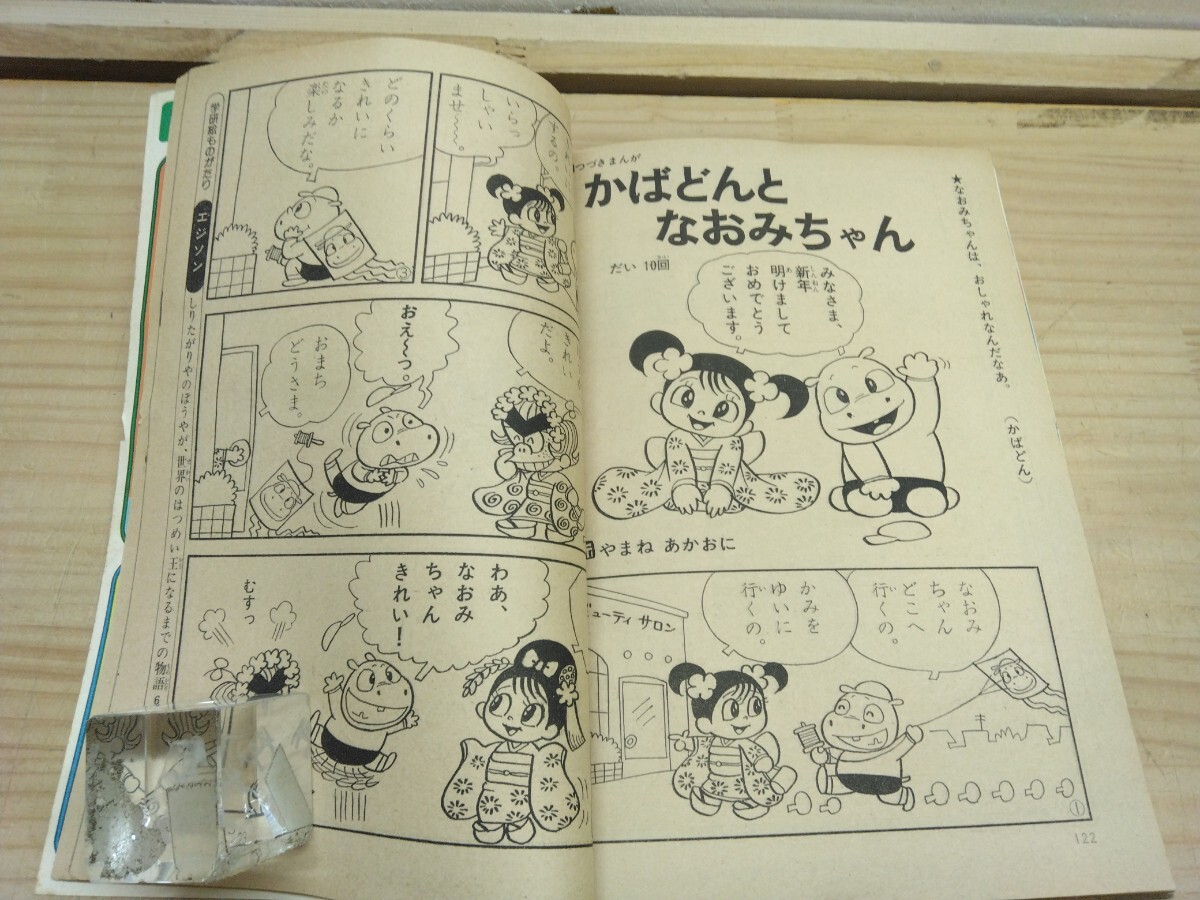 つづきまんが
かばどんと
なおみちゃん
だい10回
★なおみちゃんは、おしゃれなんだなあ。
（かばどん）
みなさま、
新年
明けまして
おめでとう
ございます。
やまね あかおに
なおみ
ちゃん
どこへ
行くの。
かみを
ゆいに
行くの。
ビューティ サロン
①
122
するの。
いらっ
しゃい
ませ〜〜。
どのくらい
きれいに
なるか
楽しみだな。
③
きれい
だよ。
おえ〜っ。
おまち
どうさま。
わあ、
なおみ
ちゃん
きれい！
むすっ
学研絵ものがたり
エジソン
しりたがりやのぼうやが、世界のはつめい王になるまでの物語
6